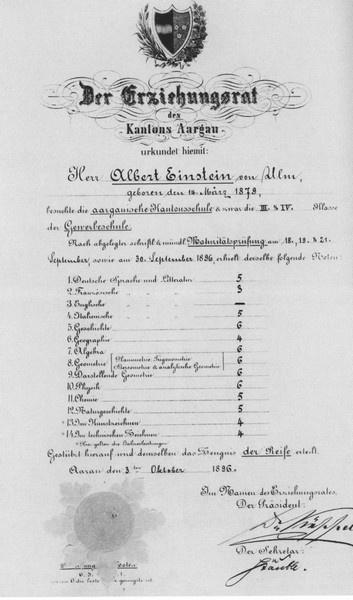 Der Erziehungsrat
des
Kantons Aargau
urkundet hiemit:
Herr Albert Einstein von Ulm,
geboren den 14. März 1879,
besuchte die aargauische Kantonsschule & zwar die III. & IV. Klasse
der Gewerbeschule.
Nach abgelegter schriftl. & mündl. Maturitätsprüfung am 18., 19. & 21.
September, sowie am 30. September 1896, erhielt derselbe folgende Noten:
1. Deutsche Sprache und Litteratur 5
2. Französische " " " 3
3. Englische " " " —
4. Italienische " " " 5
5. Geschichte 6
6. Geographie 4
7. Algebra 6
8. Geometrie { Planimetrie, Trigonometrie / Stereometrie & analytische Geometrie } 6
9. Darstellende Geometrie 6
10. Physik 6
11. Chemie 5
12. Naturgeschichte 5
* 13. Im Kunstzeichnen 4
* 14. Im technischen Zeichnen 4
* Hier gelten die Jahresleistungen.
Gestützt hierauf wird demselben das Zeugnis der Reife erteilt.
Aarau den 3ten Oktober 1896.
Im Namen des Erziehungsrates,
Der Präsident:
Der Sekretär: